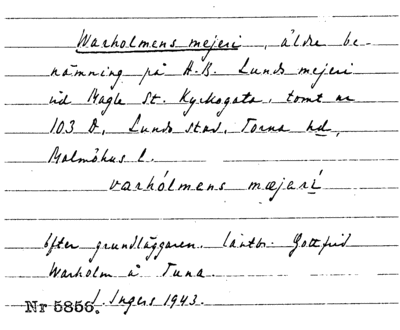 Warholmens mejeri, äldre be-
nämning på A.B. Lunds mejeri
vid Magle St. Kyrkogata, tomt nr
103 D, Lunds stad, Torna hd,
Malmöhus l.
varhólmens mæjerí
Efter grundläggaren, lantbr. Gottfrid
Warholm i Tuna.
I. Ingers 1943.
Nr 5856.